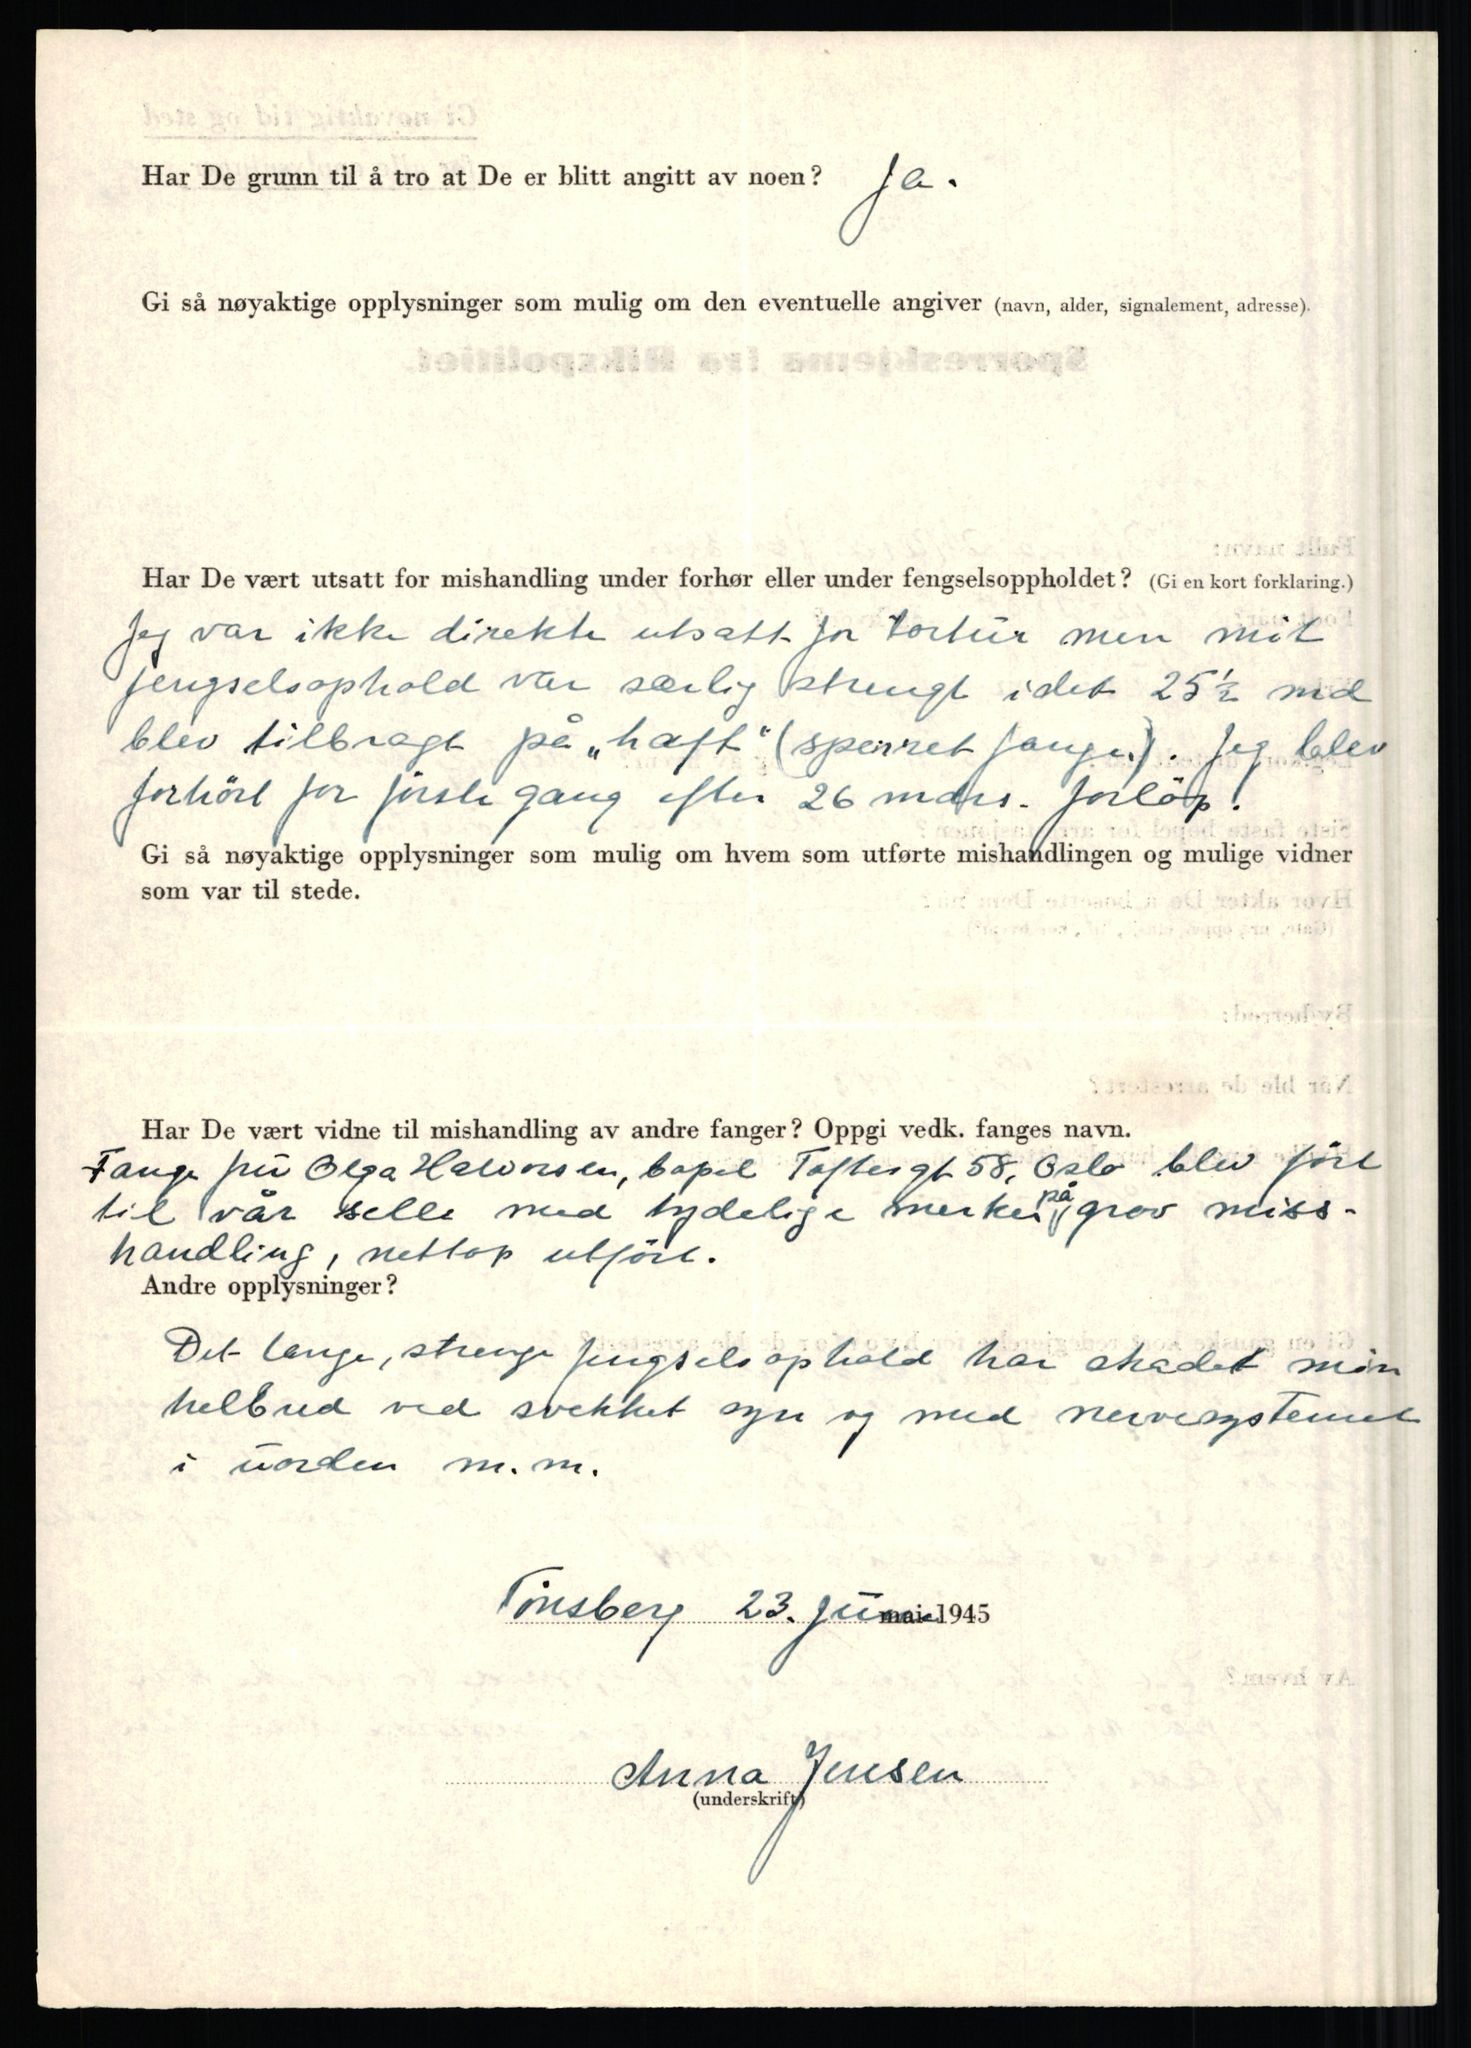 Har De grunn til å tro at De er blitt angitt av noen? Ja.
Gi så nøyaktige opplysninger som mulig om den eventuelle angiver (navn, alder, signalement, adresse).
Har De vært utsatt for mishandling under forhør eller under fengselsoppholdet? (Gi en kort forklaring.)
Jeg var ikke direkte utsatt for tortur men mit
fengselsophold var særlig strengt idet 25½ md
blev tilbragt på „haft" (sperret fange). Jeg blev
forhört for förste gang efter 26 mdrs. forlöp.
Gi så nøyaktige opplysninger som mulig om hvem som utførte mishandlingen og mulige vidner
som var til stede.
Har De vært vidne til mishandling av andre fanger? Oppgi vedk. fanges navn.
Fange fru Olga Halvorsen, bopel Toftesgt 58, Oslo blev fört
til vår selle med tydelige merker på grov miss-
handling, nettop utfört.
Andre opplysninger?
Det lange, strenge fengselsophold har skadet min
helbred ved svekket syn og med nervesystemet
i uorden m.m.
Tönsberg 23. juni mai 1945
Anna Jensen
(underskrift)